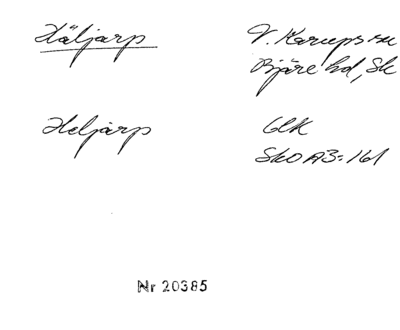 Häljarp
V. Karups sn
Bjäre hd, Sk
Heljarp
GEK
SkO A3:161
Nr 20385